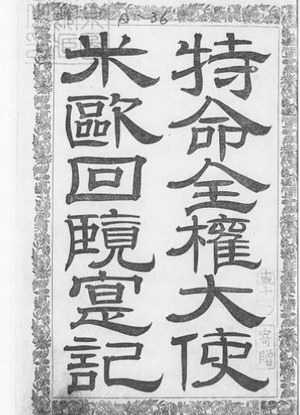 特命全權大使
米歐回覧實記
36
寄贈